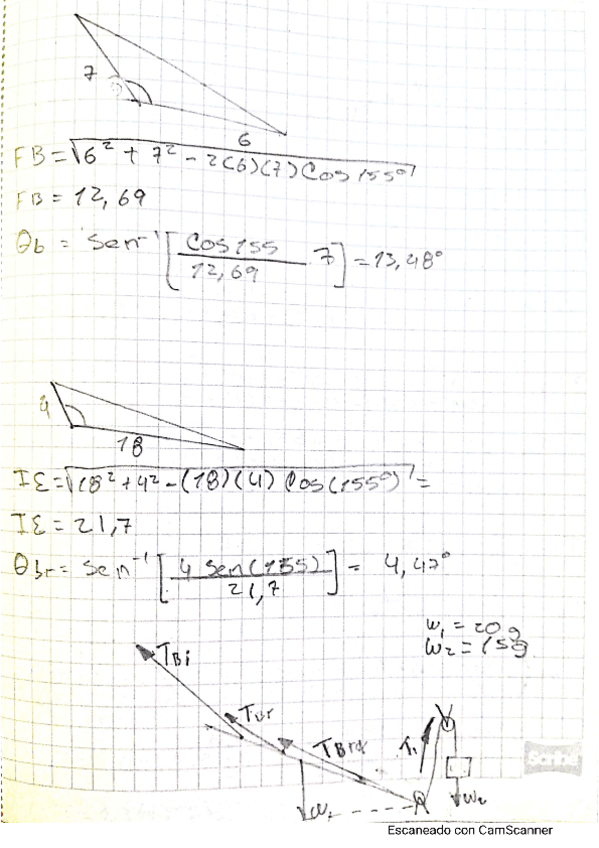 7
6
FB = √6² + 7² - 2(6)(7) Cos 155°
FB = 12,69
θb = Sen⁻¹ [ Cos 155 / 12,69 · 7 ] = 13,48°
4
18
IE = √18² + 4² - (18)(4) Cos(155°) =
IE = 21,7
θbr = Sen⁻¹ [ 4 Sen(155) / 21,7 ] = 4,47°
w₁ = 20g
w₂ = 15g
TBi
Tbr
TBrd
T₁
w₁
w₂
Scribe
Escaneado con CamScanner